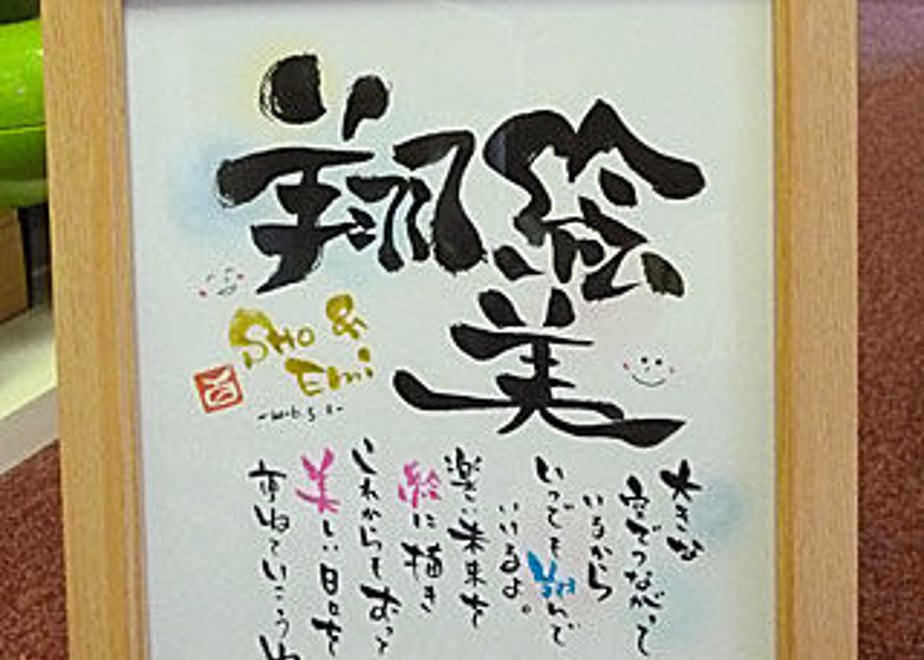 絵
美
翔
Sho &
Emi
大きな
空でつながって
いるから
いつでも翔んで
いけるよ。
楽しい未来を
絵に描き
これからもずっと
美しい日々を
重ねていこうね